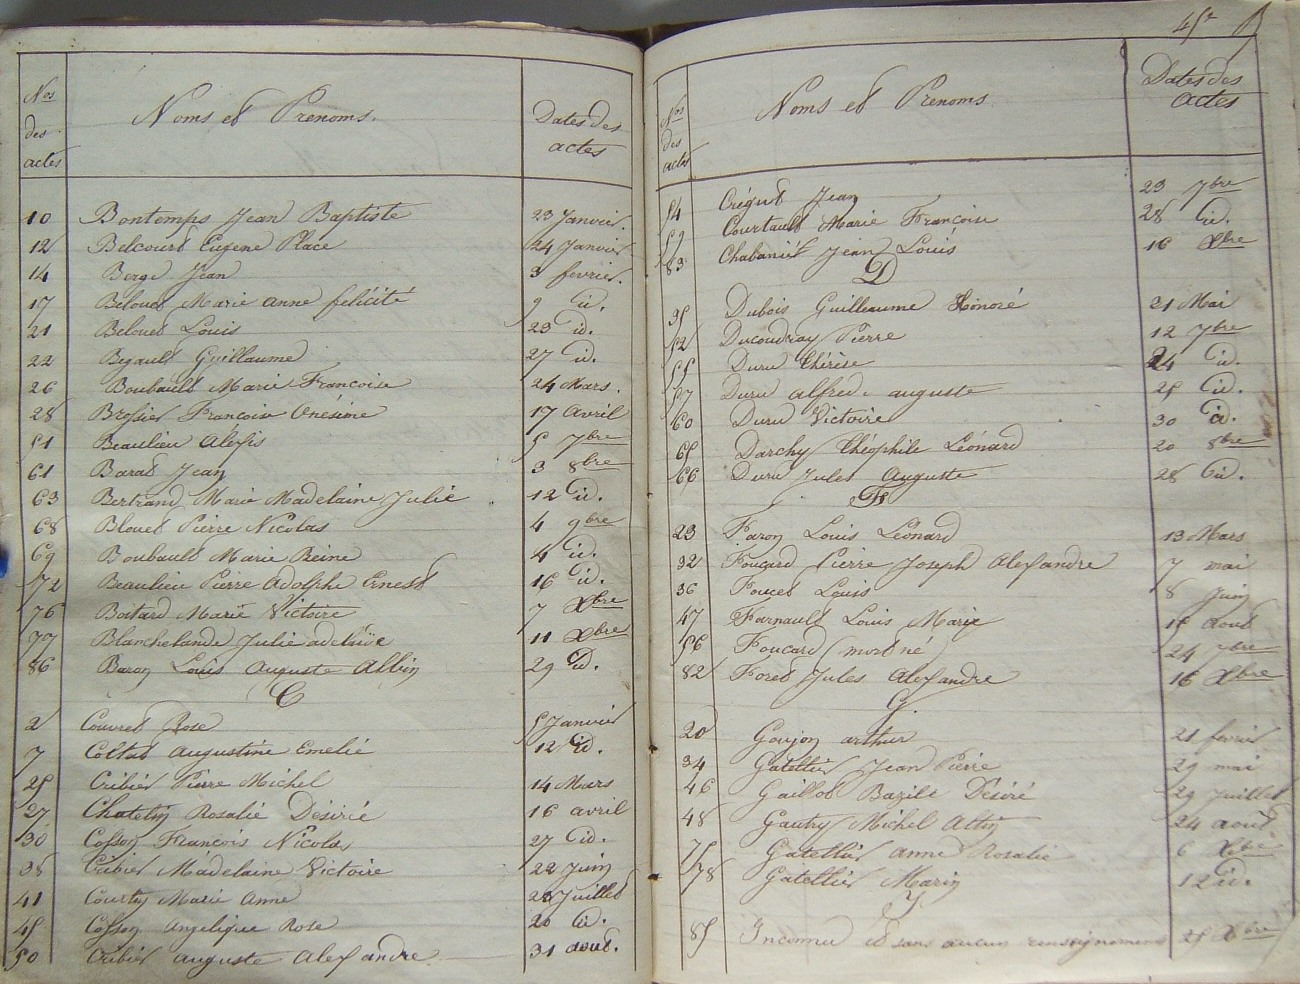 Nos des actes Noms et Prenoms. Dates des actes
10 Bontemps Jean Baptiste 23 Janvier.
12 Belcourt Eugene Place 24 Janvier
14 Bergé Jean 3 fevrier.
17 Beloued Marie Anne felicité 9 id.
21 Beloued Louis 23 id.
22 Begault Guillaume 27 id.
26 Boubault Marie Francoise 24 Mars.
28 Brossier Francoise Onésime 17 Avril
51 Beaulieu Aléxis 5 7bre
61 Barat Jean 3 8bre
63 Bertrand Marie Madelaine Julie 12 id.
68 Blouet Pierre Nicolas 4 9bre
69 Boubault Marie Reine 4 id.
72 Beaulieu Pierre Adolphe Ernest 16 id.
76 Boitard Marie Victoire 7 Xbre
77 Blanchelande Julie adelaïde 11 Xbre
86 Baron Louis Auguste Albin 29 id.
C
2 Couvret Rose 5 Janvier
7 Coltat Augustine Emelie 12 id.
25 Cribier Pierre Michel 14 Mars
27 Chatelin Rosalie Désirée 16 avril
30 Cosson François Nicolas 27 id.
38 Cribier Madelaine Victoire 22 Juin
41 Courtin Marie Anne Juillet
45 Cosson Angelique Rose 20 id.
50 Cribier Auguste Alexandre 31 aout.
45e
Nos des actes Noms et Prenoms. Dates des actes
54 Crégut Jean 23 7bre
59 Courtault Marie Françoise 28 id.
83 Chabanet Jean Louis 16 Xbre
D
35 Dubois Guilleaume Honoré 21 Mai
52 Ducoudray Pierre 12 7bre
55 Duru Thérèse 24 id.
57 Duru alfred auguste 25 id.
60 Duru Victoire 30 id.
65 Darchy Théophile Léonard 20 8bre
66 Duru Jules Auguste 28 id.
F
23 Faron Louis Léonard 13 Mars
32 Foucard Pierre Joseph Alexandre 7 mai
36 Foucet Louis 8 Juin
47 Farnault Louis Marie 15 aout
56 Foucard mort né 24 7bre
82 Foret Jules Alexandre 16 Xbre
G
20 Goujon arthur 21 fevrier
34 Gatellier Jean Pierre 29 mai
46 Gaillot Bazile Désiré 29 Juillet
48 Gautry Michel 24 aout.
75 Gatellier Anne Rosalie 6 Xbre
78 Gatellier Marin 12 id.
Y
85 Inconnu et sans aucun renseignement 25 Xbre